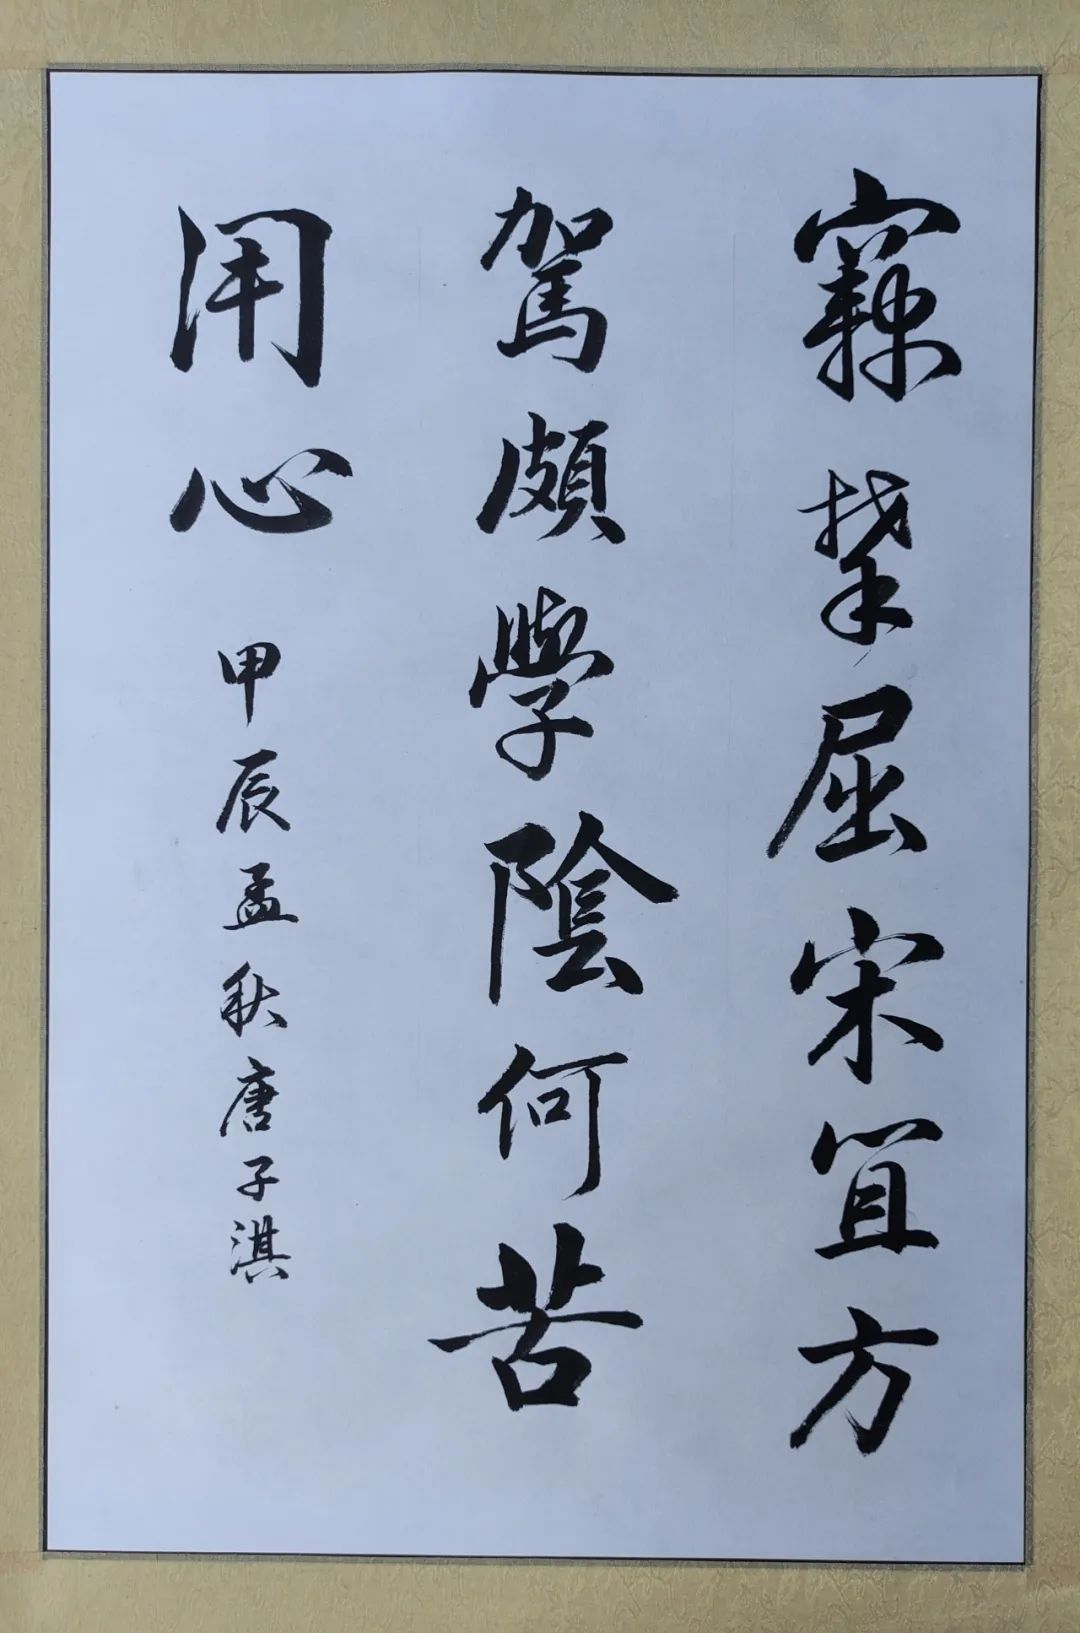 竊攀屈宋宜方
駕頗學陰何苦
用心
甲辰孟秋唐子淇